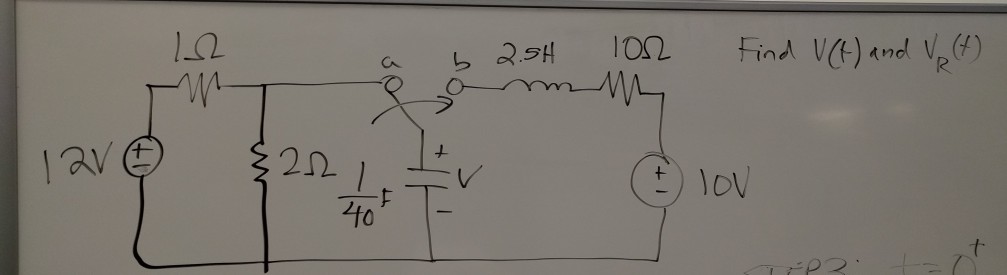 1Ω
a
b
2.5H
10Ω
Find V(t) and V_R(t)
12V
+
-
2Ω
1/40 F
+
V
-
+
-
10V
t=0⁺